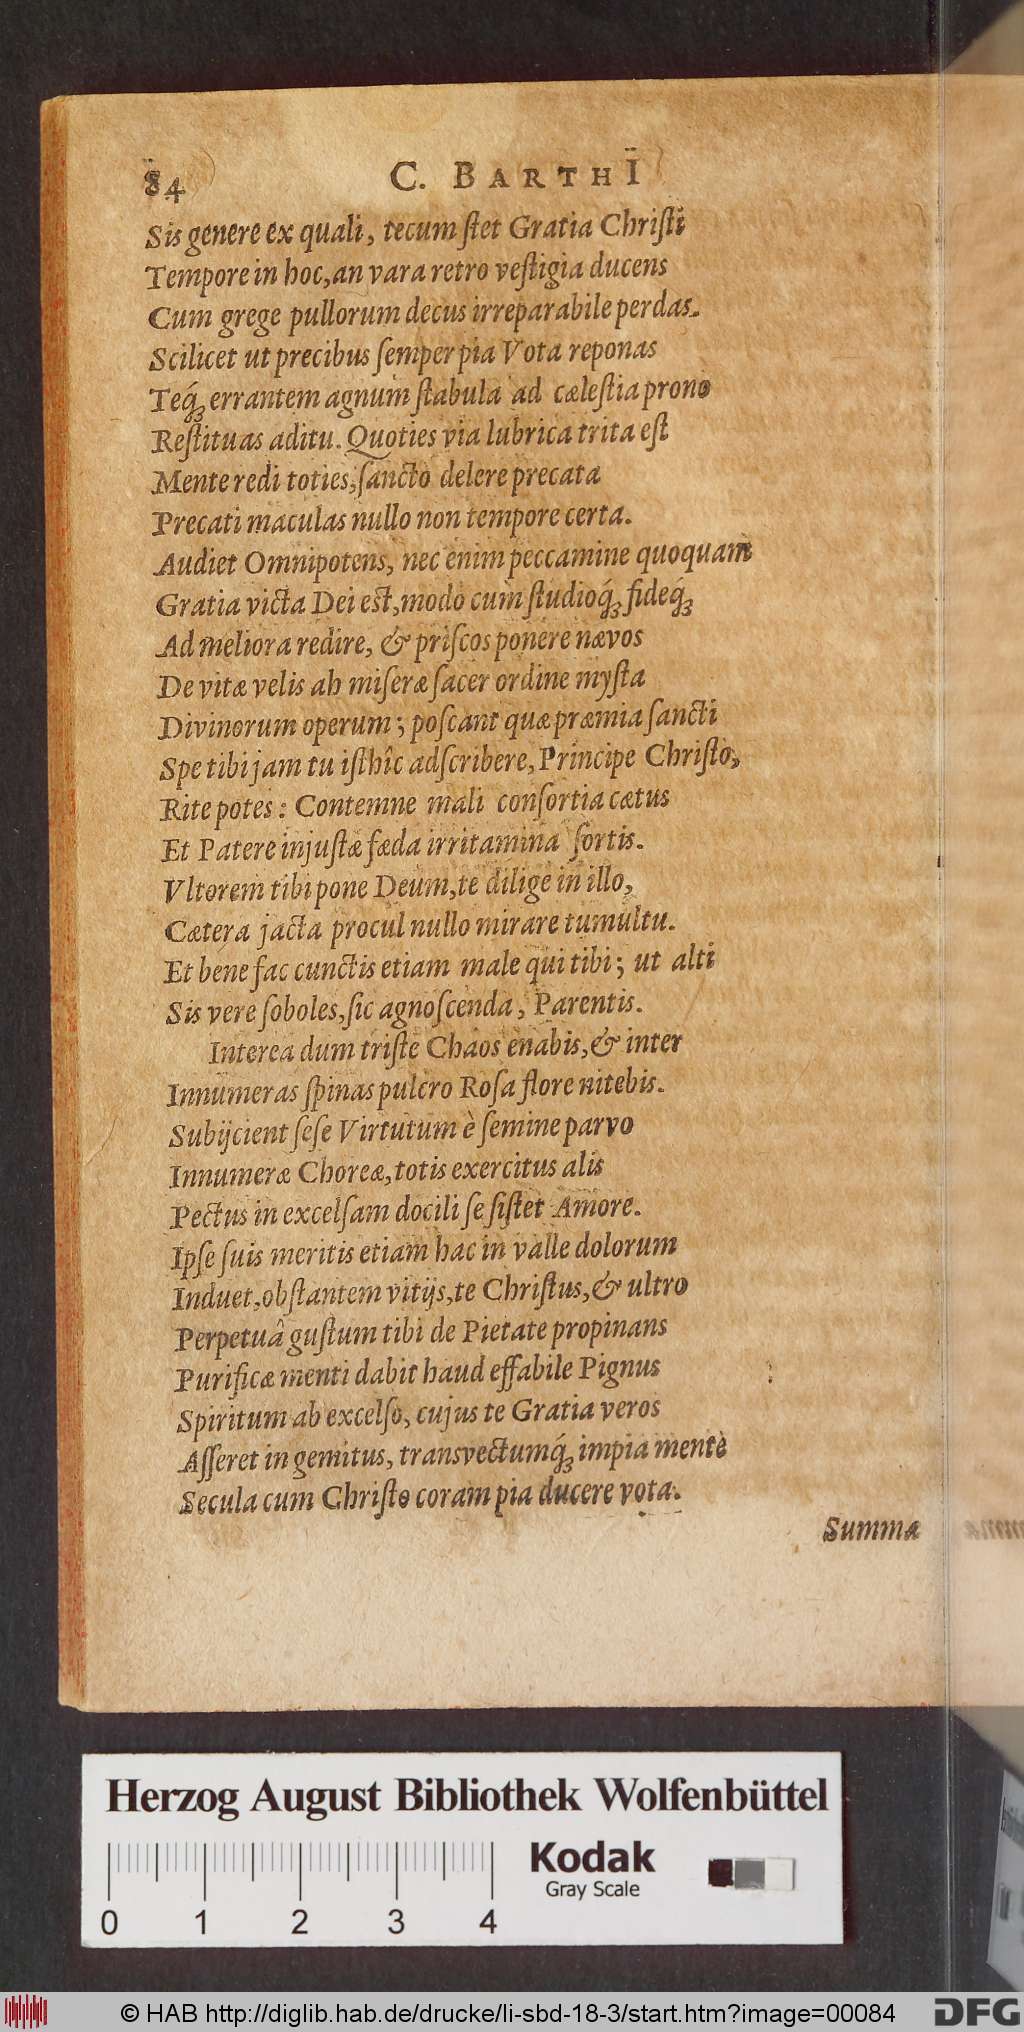 84 C. BARTHI
Sis genere ex quali, tecum ſtet Gratia Chriſti
Tempore in hoc, an vara retro veſtigia ducens
Cum grege pullorum decus irreparabile perdas.
Scilicet ut precibus ſemper pia Vota reponas
Teq́ꝫ errantem agnum ſtabula ad cæleſtia prono
Reſtituas aditu. Quoties via lubrica trita eſt
Mente redi toties, ſancto delere precata
Precati maculas nullo non tempore certa.
Audiet Omnipotens, nec enim peccamine quoquam
Gratia victa Dei est, modo cum ſtudioq́ꝫ fideq́ꝫ
Ad meliora redire, & priſcos ponere nævos
De vitæ velis ah miſeræ ſacer ordine myſta
Divinorum operum; poſcant quæ præmia ſancti
Spe tibi jam tu iſthîc adſcribere, Principe Chriſto,
Rite potes: Contemne mali conſortia cætus
Et Patere injuſtæ fæda irritamina ſortis.
Vltorem tibi pone Deum, te dilige in illo,
Cætera jacta procul nullo mirare tumultu.
Et bene fac cunctis etiam male qui tibi; ut alti
Sis vere ſoboles, ſic agnoſcenda, Parentis.
Interea dum triſte Chaos enabis, & inter
Innumeras ſpinas pulcro Roſa flore nitebis.
Subijcient ſeſe Virtutum è ſemine parvo
Innumeræ Choreæ, totis exercitus alis
Pectus in excelſam docili ſe ſiſtet Amore.
Ipſe ſuis meritis etiam hac in valle dolorum
Induet, obſtantem vitijs, te Chriſtus, & ultro
Perpetuâ guſtum tibi de Pietate propinans
Purificæ menti dabit haud effabile Pignus
Spiritum ab excelſo, cujus te Gratia veros
Aſſeret in gemitus, transvectumq́ꝫ impia mente
Secula cum Chriſto coram pia ducere vota.
Summæ
Herzog August Bibliothek Wolfenbüttel
Kodak
Gray Scale
0 1 2 3 4
© HAB http://diglib.hab.de/drucke/li-sbd-18-3/start.htm?image=00084
DFG